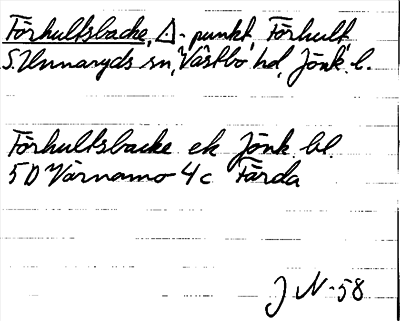 Förhultsbacke, △-punkt, Förhult
S. Unnaryds sn, Västbo hd, Jönk. l.
Förhultsbacke ek Jönk. bl.
5D Värnamo 4c Färda
J N-58